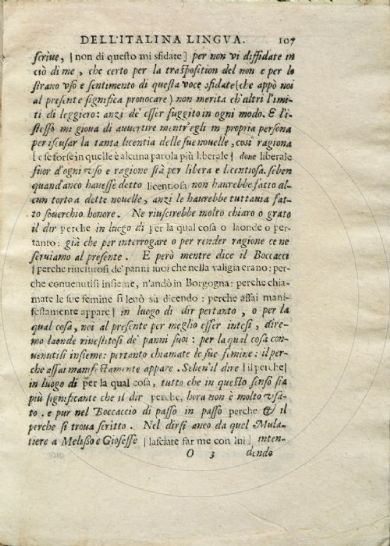 DELL'ITALINA LINGVA. 107
scriue, [non di questo mi sfidate] per non vi diffidate in
ciò di me, che certo per la trasposition del non e per lo
strano vso e sentimento di questa voce sfidate (che appò noi
al presente significa prouocare) non merita ch'altri l'imi-
ti di leggiero: anzi de' esser fuggito in ogni modo. E l'i-
stesso mi gioua di auuertire mentr'egli in propria persona
per iscusar la tanta licentia delle sue nouelle, così ragiona
[e se forse in quelle è alcuna parola più liberale] doue liberale
fuor d'ogni vso e ragione stà per libera e licentiosa. seben
quand'anco hauesse detto licentiosa non haurebbe fatto al-
cun torto a dette nouelle, anzi le haurebbe tuttauia fat-
to souerchio honore. Ne riuscirebbe molto chiaro o grato
il dir perche in luogo di per la qual cosa o laonde o per-
tanto: già che per interrogare o per render ragione ce ne
seruiamo al presente. E però mentre dice il Boccacci
[perche riuestitosi de' panni suoi che nella valigia erano: per-
che conuenutisi insieme, n'andò in Borgogna: perche chia-
mate le sue femine si leuò sù dicendo: perche assai mani-
festamente appare] in luogo di dir pertanto, o per la
qual cosa, noi al presente per meglio esser intesi, dire-
mo laonde riuestitosi de' panni suoi: per la qual cosa con-
uenutisi insieme: pertanto chiamate le sue femine: il per-
che assai manifestamente appare. Seben'il dire [il perche]
in luogo di per la qual cosa, tutto che in questo senso sia
più significante che il dir perche, hora non è molto vsa-
to. e pur nel Boccaccio di passo in passo perche & il
perche si troua scritto. Nel dirsi anco da quel Mula-
tiere a Melisso e Giosesso [lasciate far me con lui] inten-
O 3 dendo